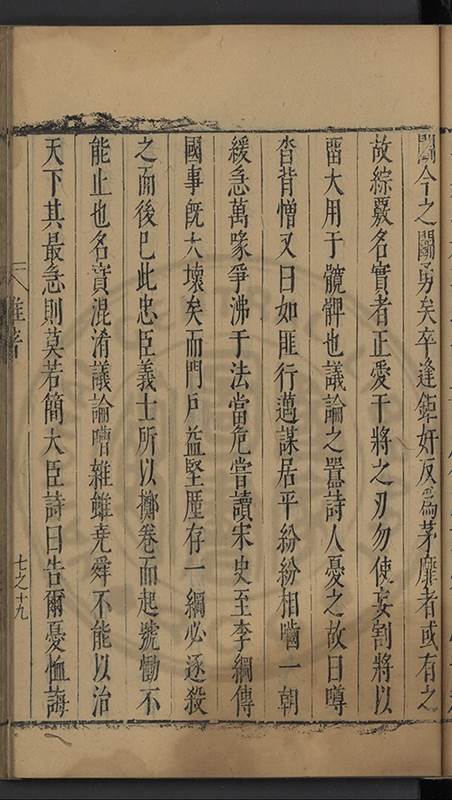 鬭今之鬭勇矣卒逢鉅奸反爲茅靡者或有之
故綜覈名實者正愛干將之刃勿使妄割將以
畱大用于髖髀也議論之囂詩人憂之故曰噂
沓背憎又曰如匪行邁謀居平紛紛相嚙一朝
緩急萬喙爭沸于法當危嘗讀宋史至李綱傳
國事旣大壞矣而門戶益堅厪存一綱必逐殺
之而後已此忠臣義士所以擲卷而起號慟不
能止也名實混淆議論嘈雜雖堯舜不能以治
天下其最急則莫若簡大臣詩曰告爾憂恤誨
雜著
七之十九